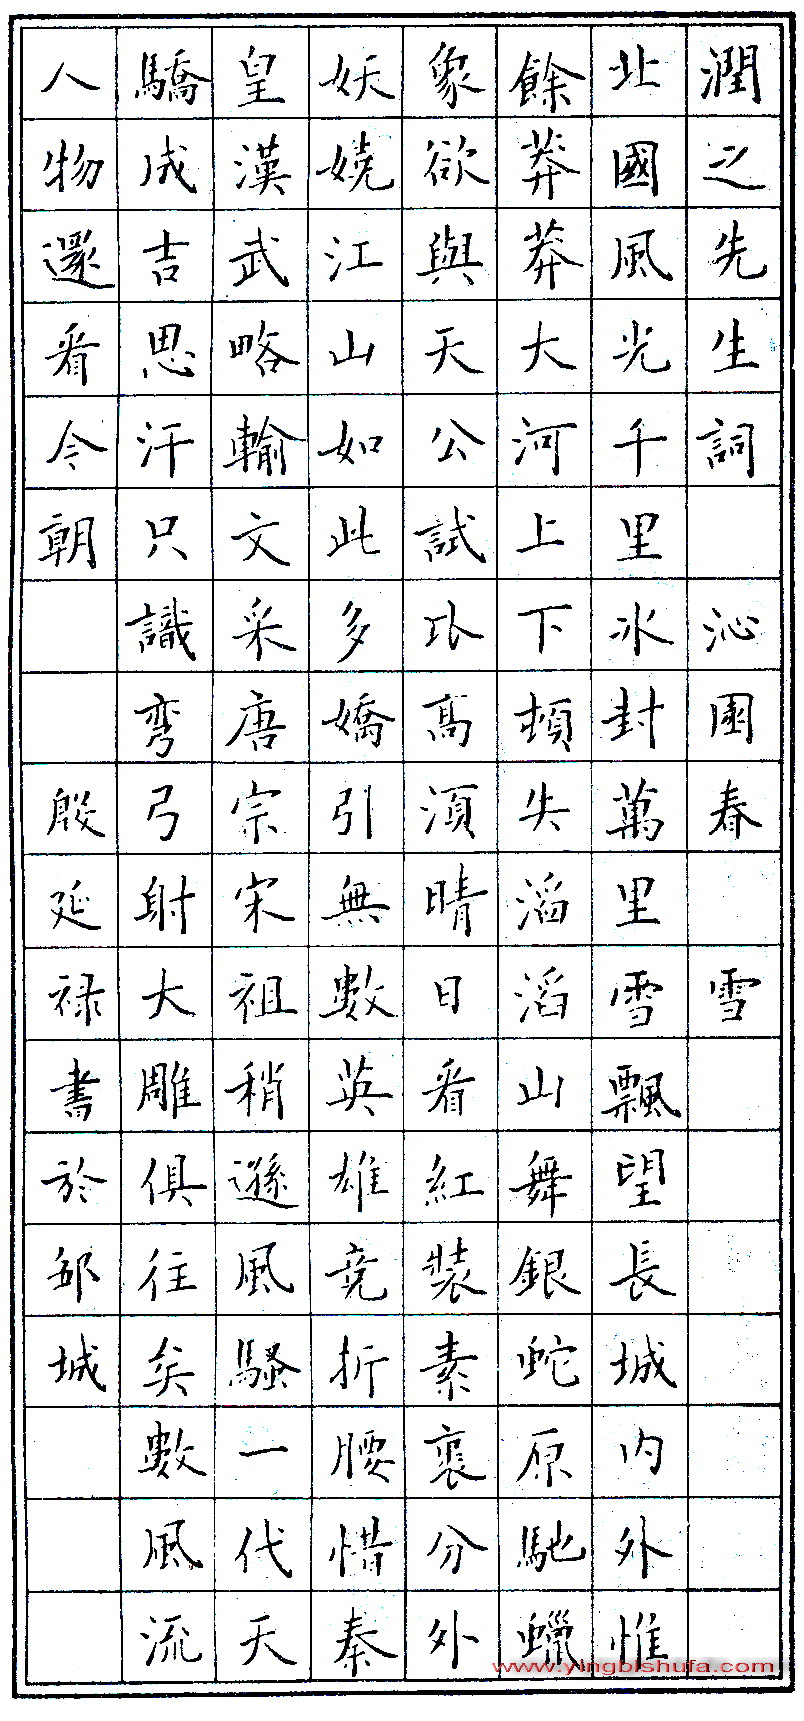 潤之先生詞 沁園春 雪
北國風光千里冰封萬里雪飄望長城内外惟
餘莽莽大河上下頓失滔滔山舞銀蛇原馳蠟
象欲與天公試比高須晴日看紅裝素裹分外
妖嬈江山如此多嬌引無數英雄竞折腰惜秦
皇漢武略輸文采唐宗宋祖稍遜風騷一代天
驕成吉思汗只識弯弓射大雕俱往矣數風流
人物還看今朝 殷延禄書於邹城
www.yingbishufa.com